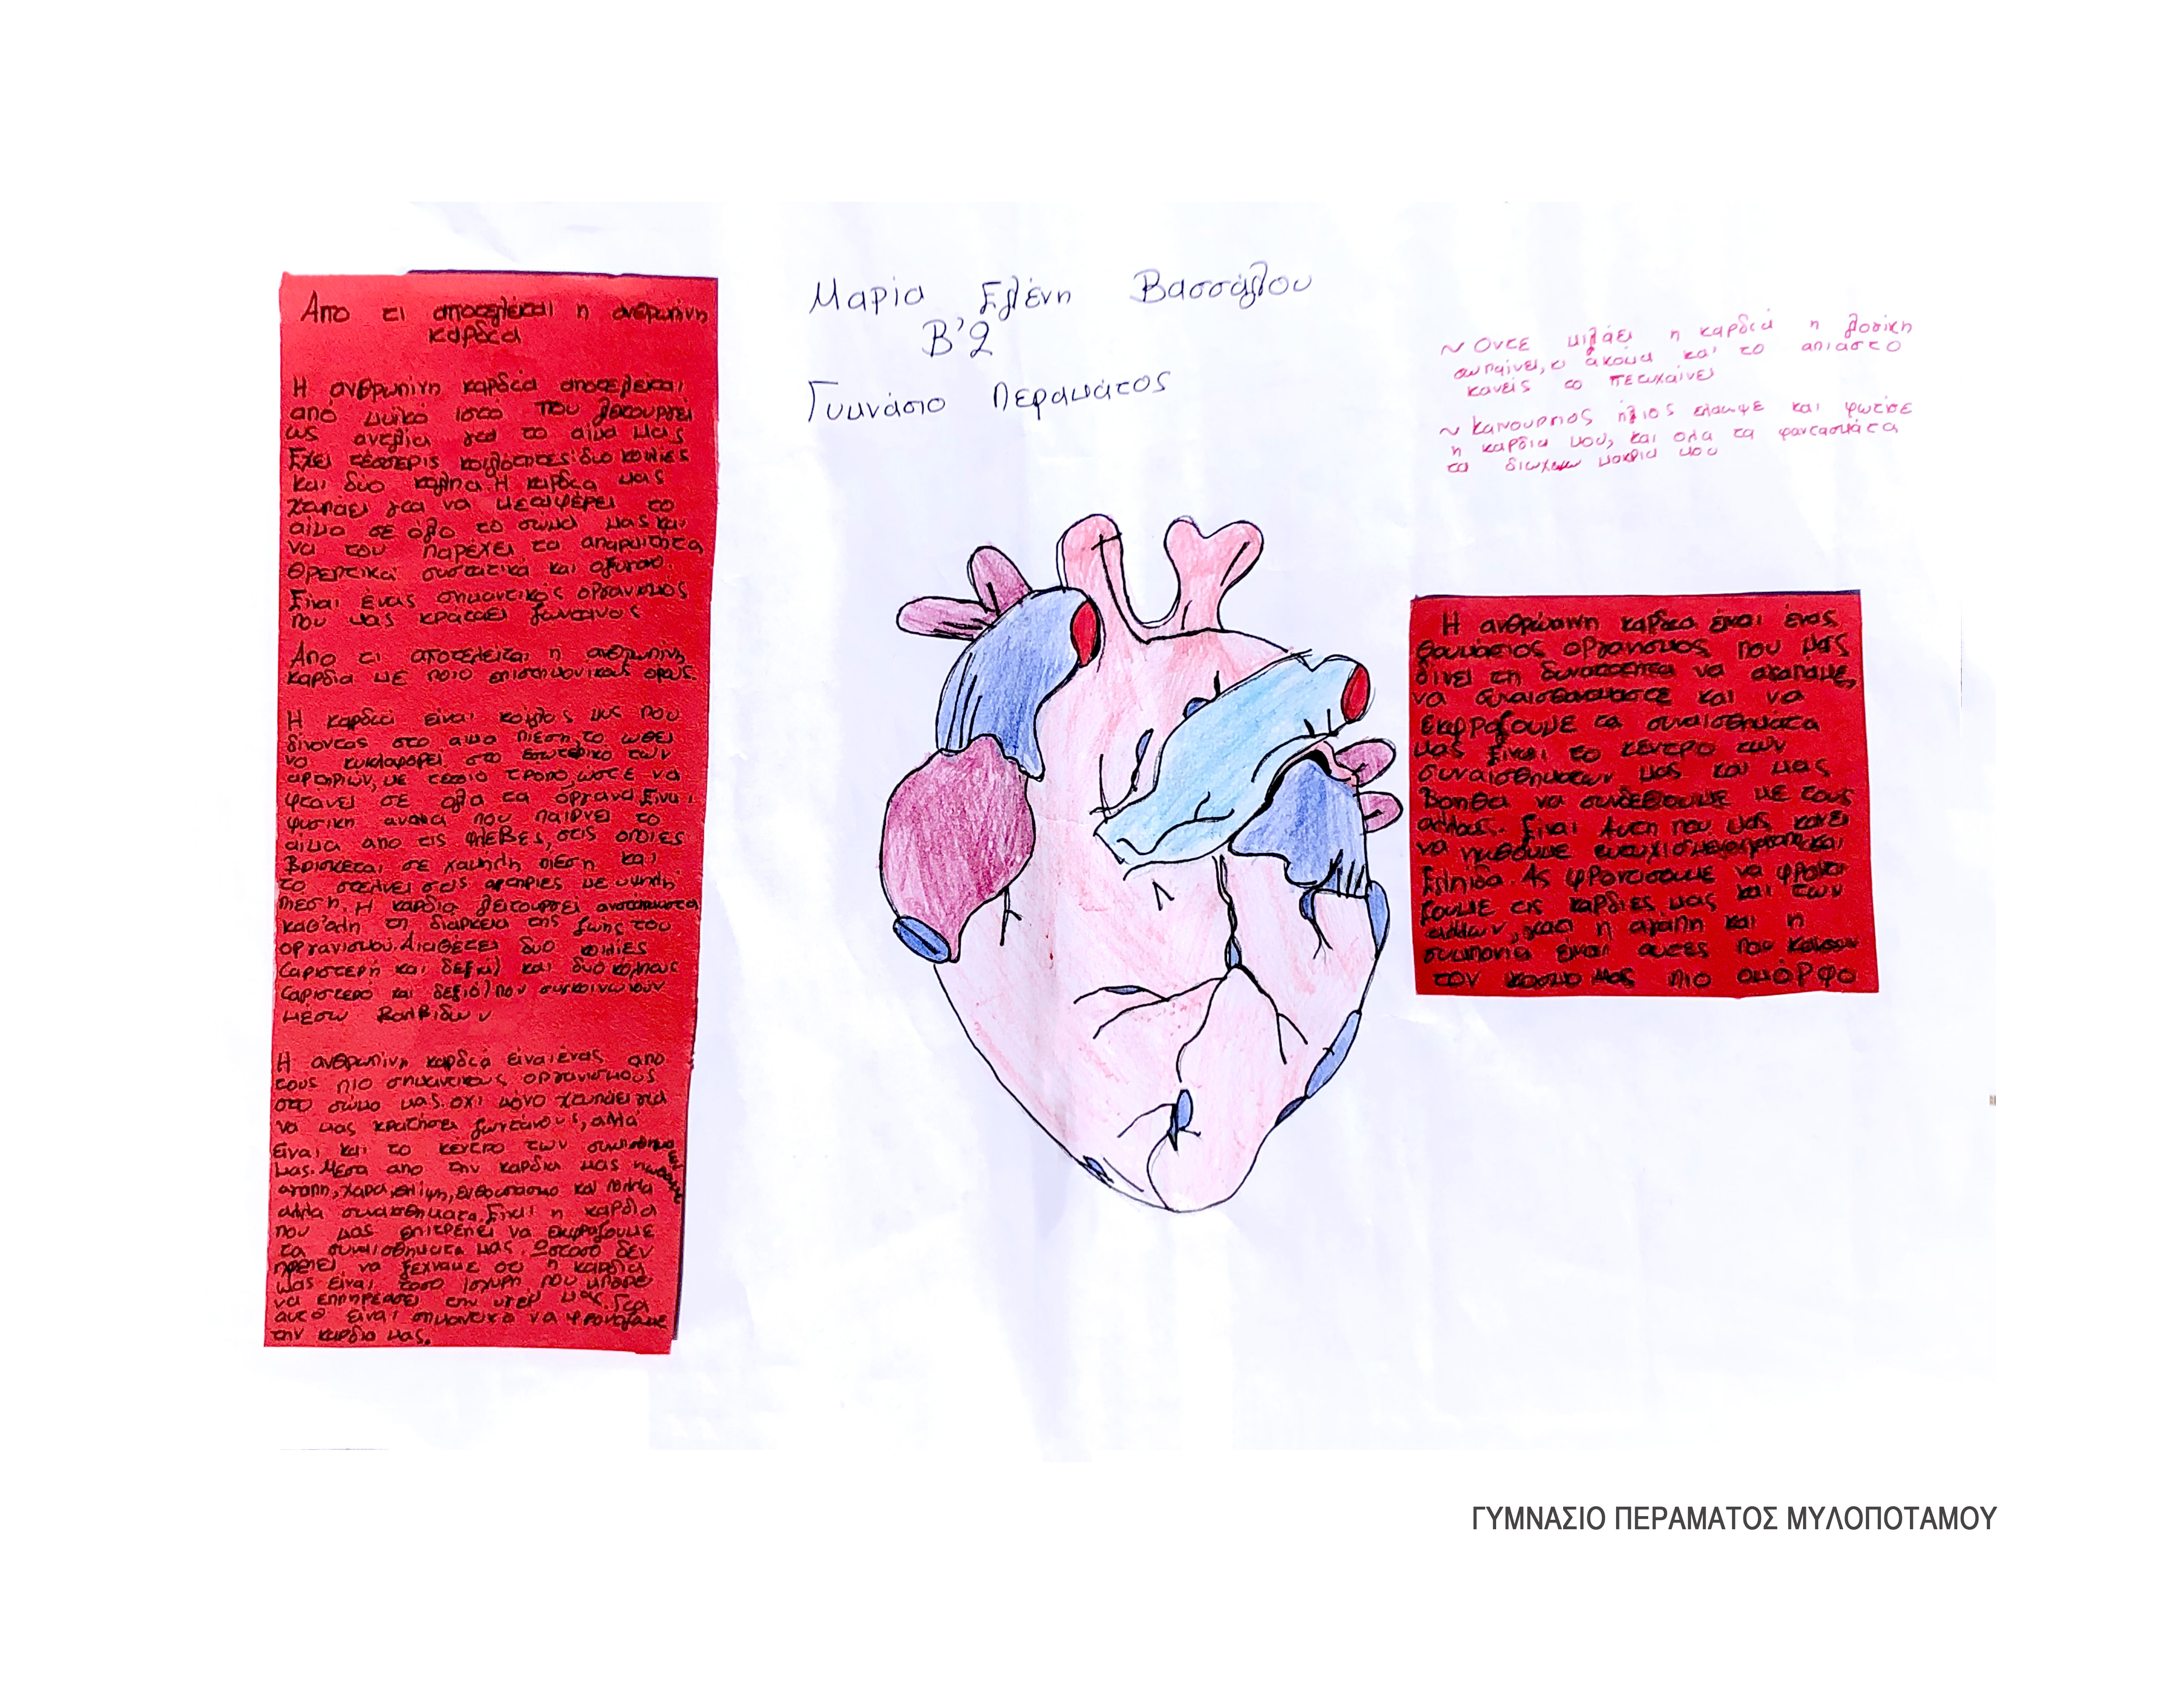 Απο τι αποτελειται η ανθρωπινη
καρδια
Η ανθρωπινη καρδιά αποτελειται
από μυϊκό ιστό που λειτουργεί
ως αντλια για το αιμα μας
Εχει τέσσερις κοιλότητες: δυο κοιλιες
και δυο κολποι. Η καρδια μας
χτυπάει για να μεταφέρει το
αίμα σε όλο το σώμα μας και
να του παρέχει τα απαραιτητα
θρεπτικά συστατικά και οξυγονο.
Ειναι ένας σημαντικός οργανισμός
που μας κρατάει ζωντανος
Απο τι αποτελειται η ανθρωπινη
καρδια με ποιο επιστημονικους ορους.
Η καρδιά είναι κοίλος μυς που
δίνοντας στο αιμα πιεση το ωθει
να κυκλοφορει στο εσωτερικο των
αρτηριων, με τέτοιο τροπο, ωστε να
φτανει σε ολα τα όργανα. Ειναι
φυσικη αντλια που παιρνει το
αίμα απο τις φλεβες, στις οποιες
βρισκεται σε χαμηλη πιεση και
το στελνει στις αρτηριες με υψηλη
πιεση. Η καρδια λειτουργεί ασταματητα
καθ'ολη τη διαρκεια της ζωης του
οργανισμού. Διαθέτει δυο κοιλιες
(αριστερή και δεξια) και δυο κολπους
(αριστερό και δεξιό) που συγκοινωνουν
μεσω βαλβιδων
Η ανθρωπινη καρδιά είναι ένας απο
τους πιο σημαντικους οργανισμους
στο σώμα μας. οχι μόνο χτυπάει για
να μας κρατήσει ζωντανους, αλλά
είναι και το κέντρο των
μας. Μεσα απο την καρδια μας
αγαπη, χαρα, θλιψη, ενθουσιασμο και πολλα
αλλα συναισθηματα. Ειναι η καρδια
που μας επιτρεπει να εκφραζουμε
τα συναισθηματα μας. Ωστοσο δεν
πρεπει να ξεχναμε οτι η καρδια
μας είναι τοσο ισχυρη που μπορει
να επηρεασει την μας. Γι
αυτό είναι σημαντικό να φροντιζουμε
την καρδια μας.
Μαρία Ελένη Βασσάλου
Β'2
Γυμνάσιο Περάματος
~ Οντε μιλάει η καρδιά η λογικη
σωπαίνει, κι ακόμα και το απιαστο
κανείς το πετυχαίνει
~ Καινουργιος ήλιος ελαμψε και φωτισε
η καρδια μου, και ολα τα φαντασματα
τα μακρια μου
Η ανθρώπινη καρδια είναι ένας
θαυμάσιος οργανισμος που μας
δίνει τη δυνατοτητα να αγαπάμε,
να αισθανομαστε και να
εκφραζουμε τα συναισθηματα
μας. Ειναι το κεντρο των
συναισθηματων μας και μας
βοηθα να συνδεθουμε με τους
αλλους. Ειναι Αυτη που μας κανει
να νιωθουμε ευτυχισμενοι, και
Ελπιδα. Ας φροντισουμε να φροντι
ζουμε τις καρδιες μας και των
αλλων, γιατι η αγαπη και η
συμπονια ειναι αυτες που κανουν
τον κοσμο μας πιο ομόρφο
ΓΥΜΝΑΣΙΟ ΠΕΡΑΜΑΤΟΣ ΜΥΛΟΠΟΤΑΜΟΥ